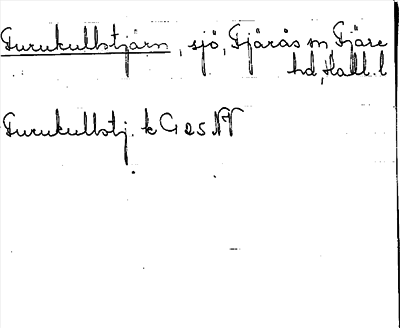 Furukullstjärn, sjö, Fjärås sn, Fjäre
hd, Hall. l
Furukullstj. k G 25 NV